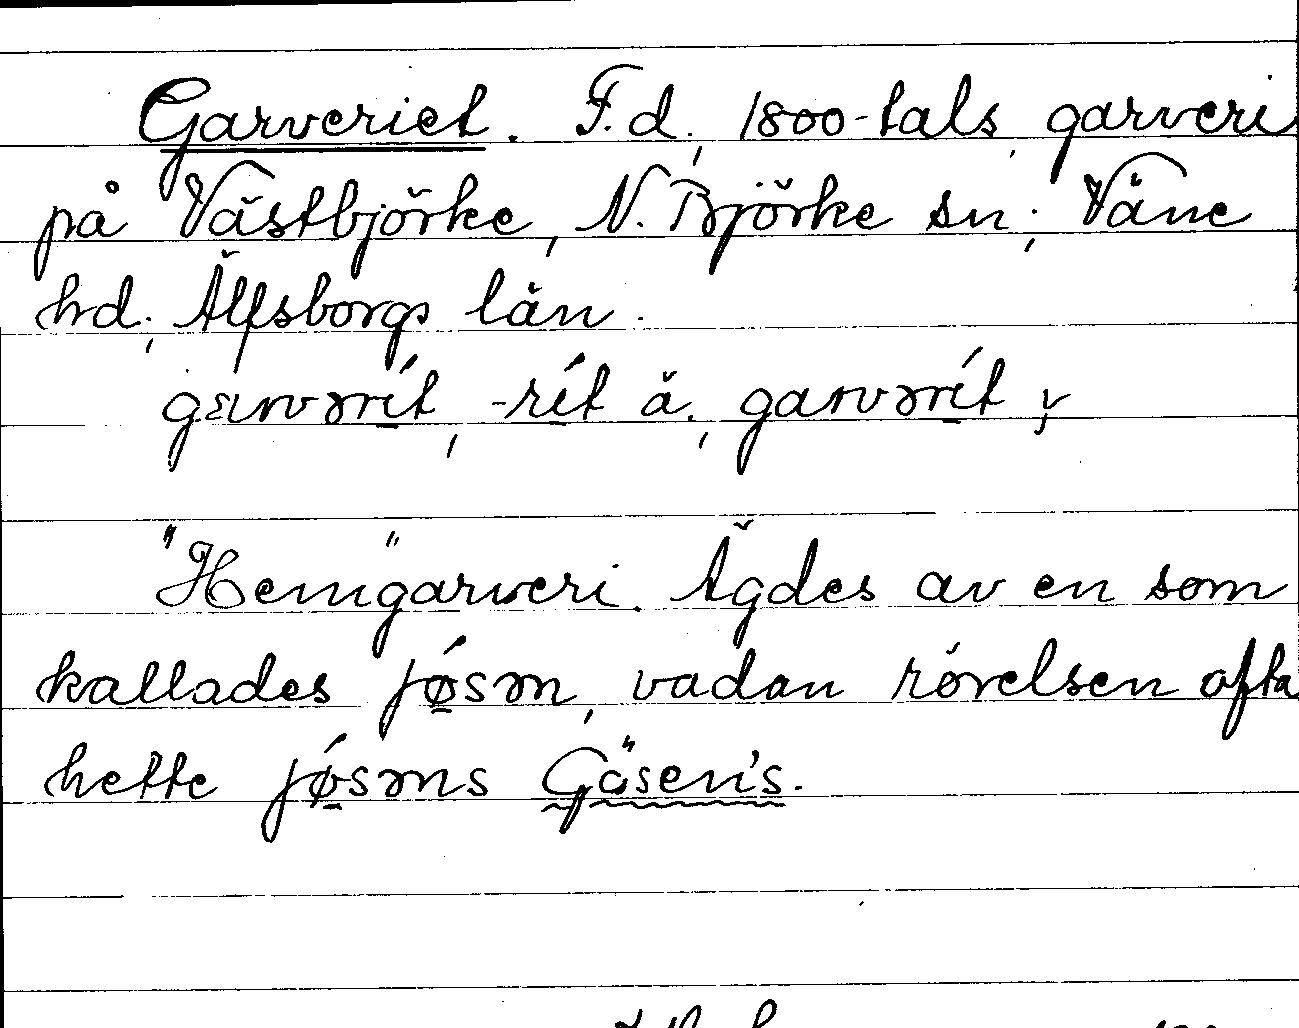 Garveriet. F.d., 1800-tals, garveri
på Västbjörke, N. Björke sn., Väne
hd., Älfsborgs län.
garvərít, -rít ä., garvərít y
"Hem"garveri. Ägdes av en som
kallades jǿ̱sən, vadan rörelsen ofta
hette jǿ̱səns Gösen's.